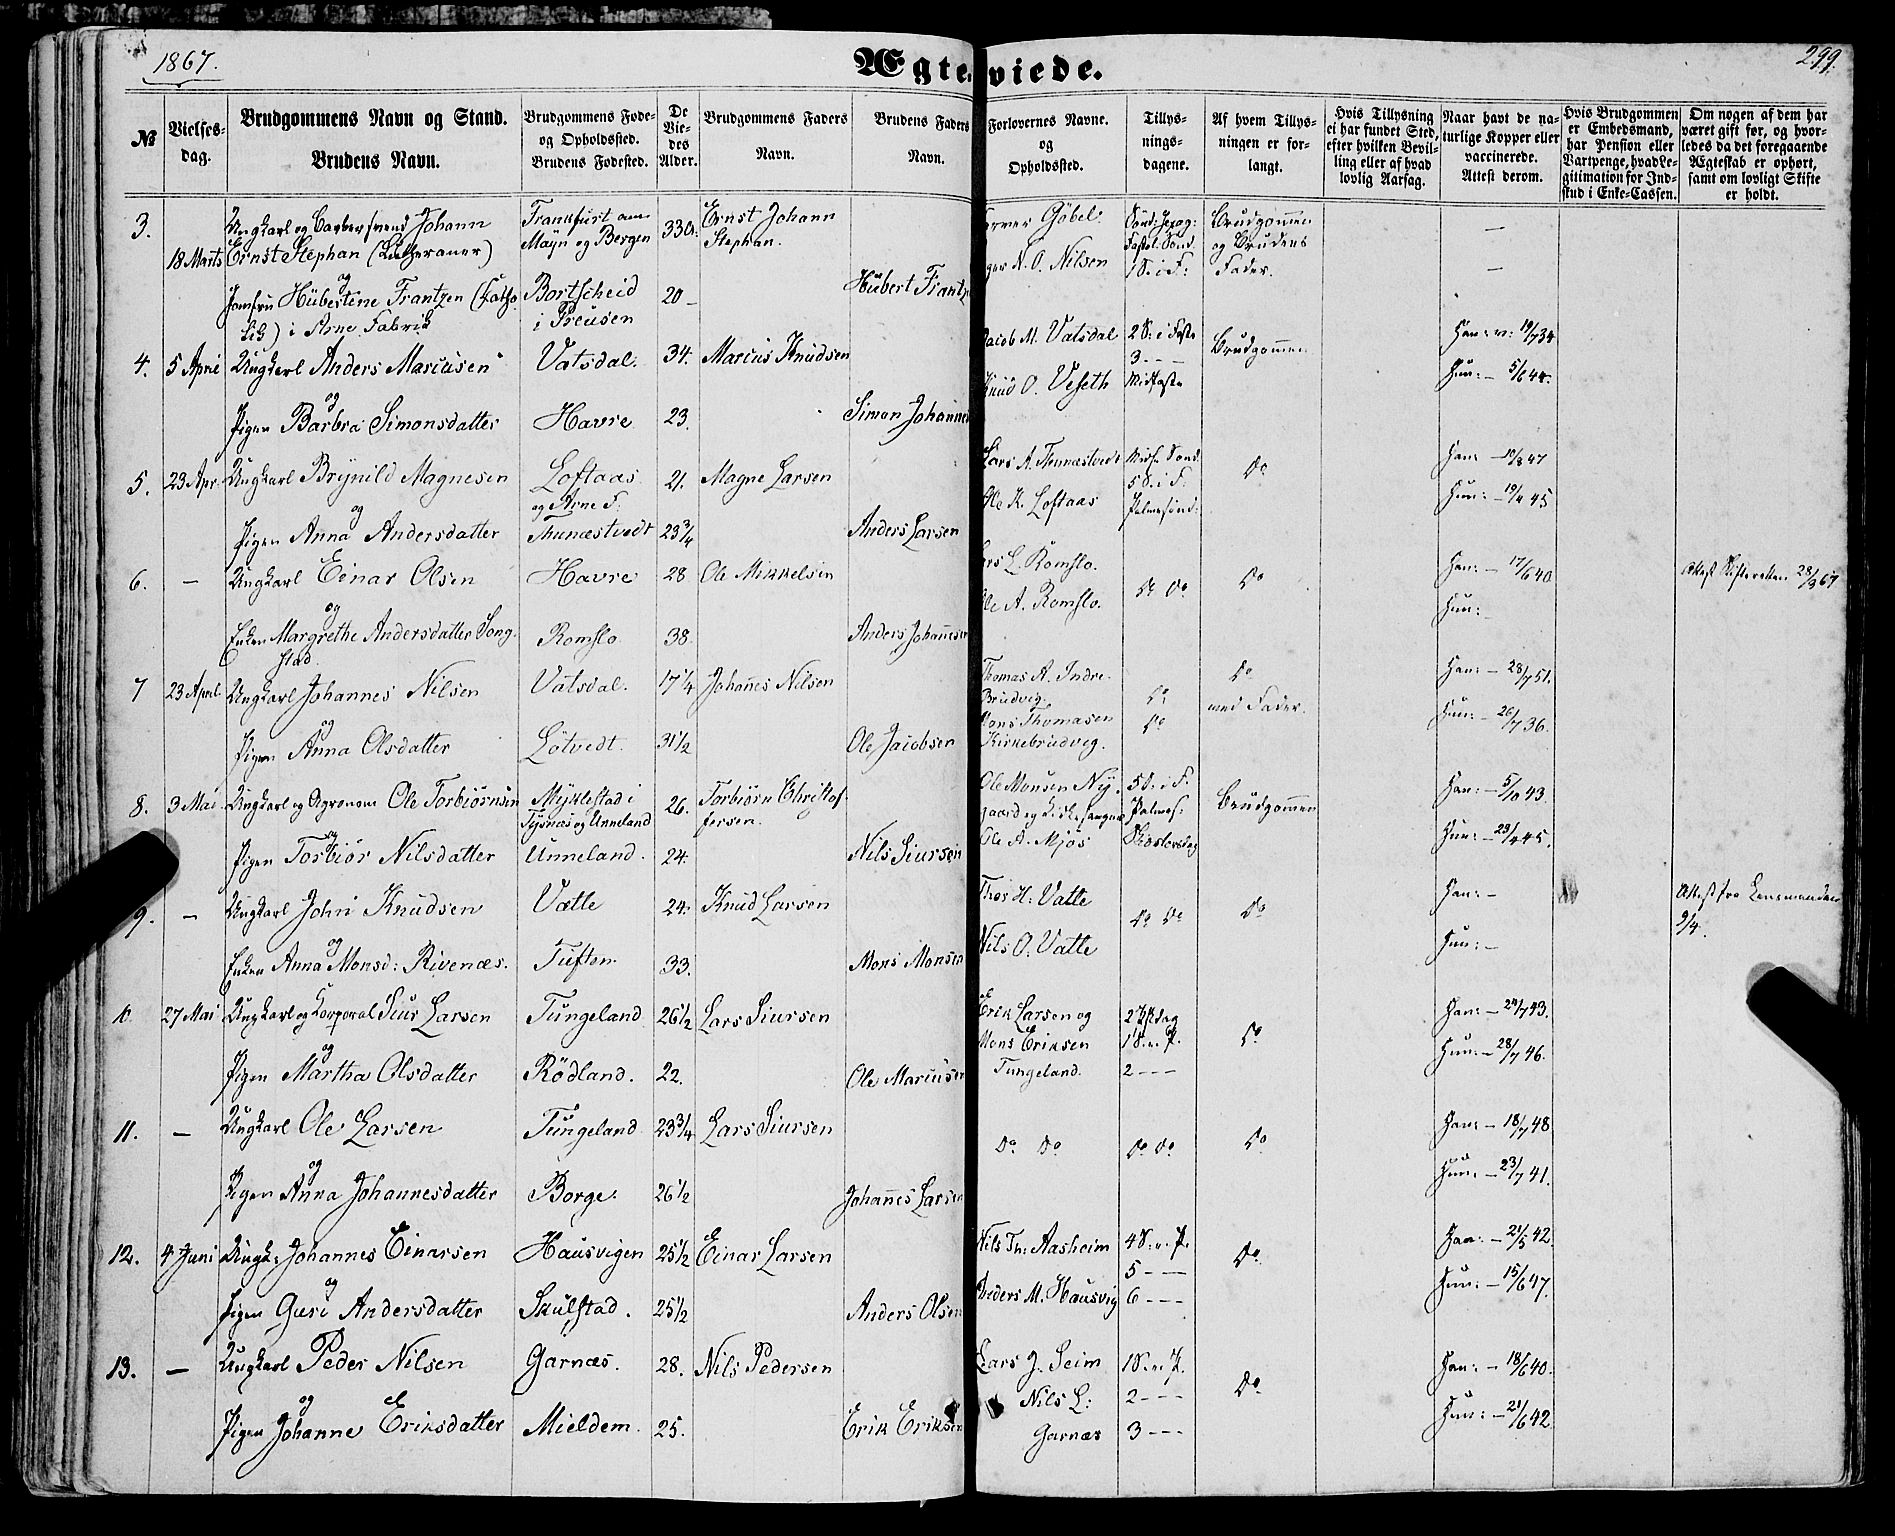 1867.
Ægteviede.
299.
№
Vielses-
dag.
Brudgommens Navn og Stand.
Brudens Navn.
Brudgommens Føde-
og Opholdssted.
Brudens Fødested.
De
Vie-
des
Alder.
Brudgommens Faders
Navn.
Brudens Faders
Navn.
Forlovernes Navne.
og
Opholdssted.
Tillys-
nings-
dagene.
Af hvem Tillys-
ningen er for-
langt.
Hvis Tillysning
ei har fundet Sted,
efter hvilken Bevil-
ling eller af hvad
lovlig Aarsag.
Naar havt de na-
turlige Kopper eller
vaccinerede.
Attest derom.
Hvis Brudgommen
er Embedsmand,
har Pension eller
Vartpenge, hvad Le-
gitimation for Ind-
skud i Enke-Cassen.
Om nogen af dem har
været gift før, og hvor-
ledes da det foregaaende
Ægteskab er ophørt,
samt om lovligt Skifte
er holdt.
3.
18 Marts
Ungkarl og Farversvend Johann
Ernst Stephan (Lutheraner)
og
Jomfru Hübertine Frantzen (Katho
lik) i Arne Fabrik
Frankfurt am
Mayn og Bergen
Bortscheid
i Preusen
33
20 –
Ernst Johann
Stephan.
Hübert Frantz
Göbel.
N. O. Nilsen
Fastel. Sønd.
1 S. i F:
Brudgommen
og Brudens
Fader.
–
–
4.
5 April
Ungkarl Anders Mariusen
og
Pigen Barbra Simonsdatter
Vatsdal.
Havre
34.
23.
Marius Knudsen
Simon Johannes
Jacob M. Vatsdal
Knud O. Veseth
2 S: i Faste
3 – – –
Midfaste
Brudgommen
Han: v: 19/7 34
Hun: – 5/6 44.
5.
23 Apr.
Ungkarl Brynild Magnesen
og
Pigen Anna Andersdatter
Loftaas
og Arne F.
Tunæstvedt
21.
23 3/4
Magne Larsen
Anders Larsen
Lars A. Thunæstvedt
Ole K. Loftaas
Midf. Sønd
5 S. i F.
Palmesønd.
Do
Han: – 10/8 47
Hun: – 19/4 45
6.
–
Ungkarl Einar Olsen
og
Enken Margrethe Andersdatter Song-
stad.
Havre
Romslo
28
38.
Ole Mikkelsen
Anders Johannesen
L. Romslo.
Ole A. Romslo.
Do Do
Do
Han: – 17/6 40
Hun: –
Attest Skifteretten 28/3 67
7
23 April.
Ungkarl Johannes Nilsen
og
Pigen Anna Olsdatter
Vatsdal.
Lötvedt.
17 1/4
31 1/2
Johannes Nilsen
Ole Jacobsen
Thomas A. Indre
Brudvig.
Mons Thomasen
Kirkebrudvig.
Do
Do
Do
med Fader.
Han: – 28/7 51.
Hun: – 26/7 36.
8.
3 Mai
Ungkarl og Agronom Ole Torbiörnsen
og
Pigen Torbiör Nilsdatter
Myklestad i
Tysnæs og Unneland
Unneland.
26.
24.
Torbiörn Christof-
fersen.
Nils Siursen
Ole Monsen Ny-
gaard og Kirkesanger
Ole A. Mjös
5 S. i F.
Palmes:
Skjærtorsdag
Brudgommen
Han: – 5/10 43.
Hun: – 23/4 45.
9.
–
Ungkarl John Knudsen
og
Enken Anna Monsd: Rivenæs.
Vatle
Tuften
24.
33.
Knud Larsen
Mons Monsen
Thor H. Vatle
Nils O. Vatle
Do Do
Do
Han: –
Hun: –
Attest fra Lensmanden
9/4.
10.
27 Mai
Ungkarl og Korporal Siur Larsen
og
Pigen Martha Olsdatter
Tungeland
Rödland.
26 1/2
22.
Lars Siursen
Ole Mariusen
Erik Larsen og
Mons Eriksen
Tungeland.
2 Pskdag
1 S. e. P.
2 – – –
Do
Han: – 24/7 43.
Hun: – 28/7 46.
11.
–
Ungkarl Ole Larsen
og
Pigen Anna Johannesdatter
Tungeland
Borge.
23 3/4
26 1/2
Lars Siursen
Johannes Larsen
Do Do
Do Do
Do
Han: – 18/7 48
Hun: – 23/7 41.
12.
4 Juni
Ungk: Johannes Einarsen
og
Pigen Guri Andersdatter
Hausvigen
Skulstad.
25 1/2
25 1/2
Einar Larsen
Anders Olsen
Nils Th: Aasheim
Anders M. Hausvig
4 S. e. P.
5 – – –
6 – – –
Do
Han: – 21/5 42
Hun: – 15/6 47.
13.
–
Ungkarl Peder Nilsen
og
Pigen Johanne Eriksdatter
Garnæs.
Mieldem.
28.
25.
Nils Pedersen
Erik Eriksen
Lars J. Seim
Nils L:
Garnæs
1 S. e. P.
2 – – –
3 – – –
Do
Han: – 18/6 40.
Hun: – 21/6 42.